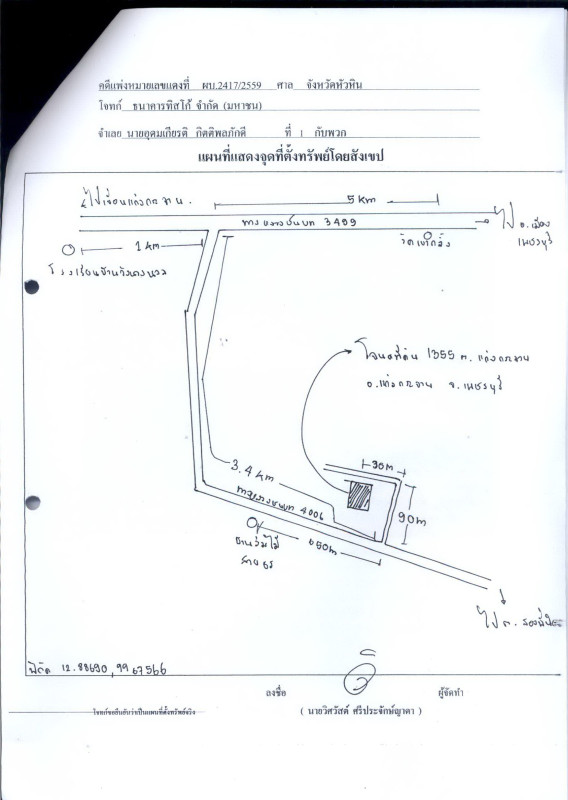 คดีแพ่งหมายเลขแดงที่ ผบ.2417/2559 ศาล จังหวัดหัวหิน
โจทก์ ธนาคารทิสโก้ จำกัด (มหาชน)
จำเลย นายอุดมเกียรติ กิตติพลภักดี ที่ 1 กับพวก
แผนที่แสดงจุดที่ตั้งทรัพย์โดยสังเขป
ไปเขื่อนแก่งกระจาน
5 km
ทางหลวงชนบท 3499
ไป อ.เมือง
เพชรบุรี
1 km
วัดเขากลิ้ง
โรงเรียนบ้านวังนางนวล
โฉนดที่ดิน 1355 ต. แก่งกระจาน
อ.แก่งกระจาน จ.เพชรบุรี
30m
3.4 km
ทางหลวงชนบท 4006
90m
650m
บ้านร่มไม้
ไป ต.
พิกัด 12.88690, 99.67566
ลงชื่อ ผู้จัดทำ
( นายวิศวัสต์ ศรีประจักษ์ญาดา )
โจทก์ขอยืนยันว่าเป็นแผนที่ตั้งทรัพย์จริง